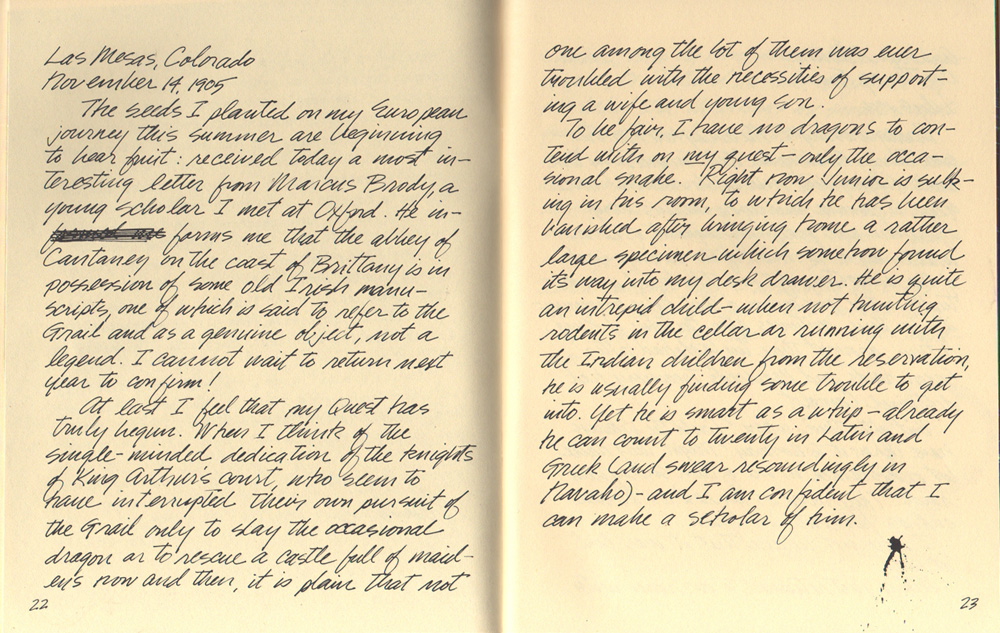 Las Mesas, Colorado
November 14, 1905
The seeds I planted on my European
journey this summer are beginning
to bear fruit: received today a most in-
teresting letter from Marcus Brody, a
young scholar I met at Oxford. He in-
forms me that the abbey of
Cantaney on the coast of Brittany is in
possession of some old Irish manu-
scripts, one of which is said to refer to the
Grail and as a genuine object, not a
legend. I cannot wait to return next
year to confirm!
At last I feel that my Quest has
truly begun. When I think of the
single-minded dedication of the knights
of King Arthur's court, who seem to
have interrupted their own pursuit of
the Grail only to slay the occasional
dragon or to rescue a castle full of maid-
en's now and then, it is plain that not
22
one among the lot of them was ever
troubled with the necessities of support-
ing a wife and young son.
To be fair, I have no dragons to con-
tend with on my quest - only the occa-
sional snake. Right now Junior is sulk-
ing in his room, to which he has been
banished after bringing home a rather
large specimen which somehow found
its way into my desk drawer. He is quite
an intrepid child - when not hunting
rodents in the cellar or running with
the Indian children from the reservation,
he is usually finding some trouble to get
into. Yet he is smart as a whip - already
he can count to twenty in Latin and
Greek (and swear resoundingly in
Navaho) - and I am confident that I
can make a scholar of him.
23